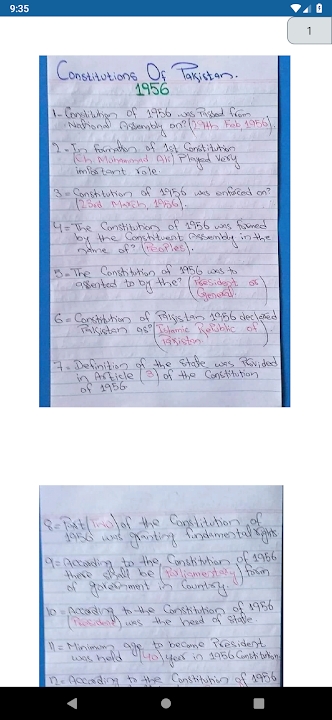 9:35
1
Constitutions Of Pakistan.
1956
1- Constitution of 1956 was Passed from
National Assembly on? (29th Feb 1956).
2 - In formation of 1st Constitution
(Ch Mohammad Ali) Played Very
important role.
3 = Constitution of 1956 was enforced on?
(23rd March, 1956).
4 = The Constitution of 1956 was framed
by the Constituent Assembly in the
name of? (Peoples).
5 = The Constitution of 1956 was to
assented to by the? (President or
General)
6 = Constitution of Pakistan 1956 declared
Pakistan as? (Islamic Republic of
Pakistan)
7 = Definition of the State was Provided
in Article (3) of the Constitution
of 1956
8 = Part (Two) of the Constitution of
1956 was granting fundamental rights
9 = According to the Constitution of 1956
there shall be (Parliamentary) form
of government in Country
10 = According to the Constitution of 1956
(President) was the head of State.
11 = Minimum age to become President
was held (40) year in 1956 Constitution
12 = According to the Constitution of 1956